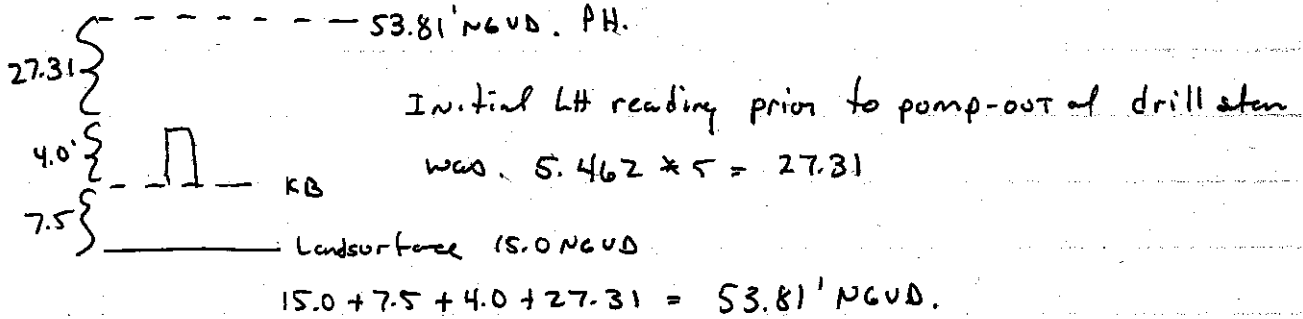 53.81' NGVD. PH.
27.31
Initial LH reading prior to pomp-out of drill stem
4.0'
was. 5.462 * 5 = 27.31
KB
7.5
Landsurface 15.0 NGVD
15.0 + 7.5 + 4.0 + 27.31 = 53.81' NGVD.